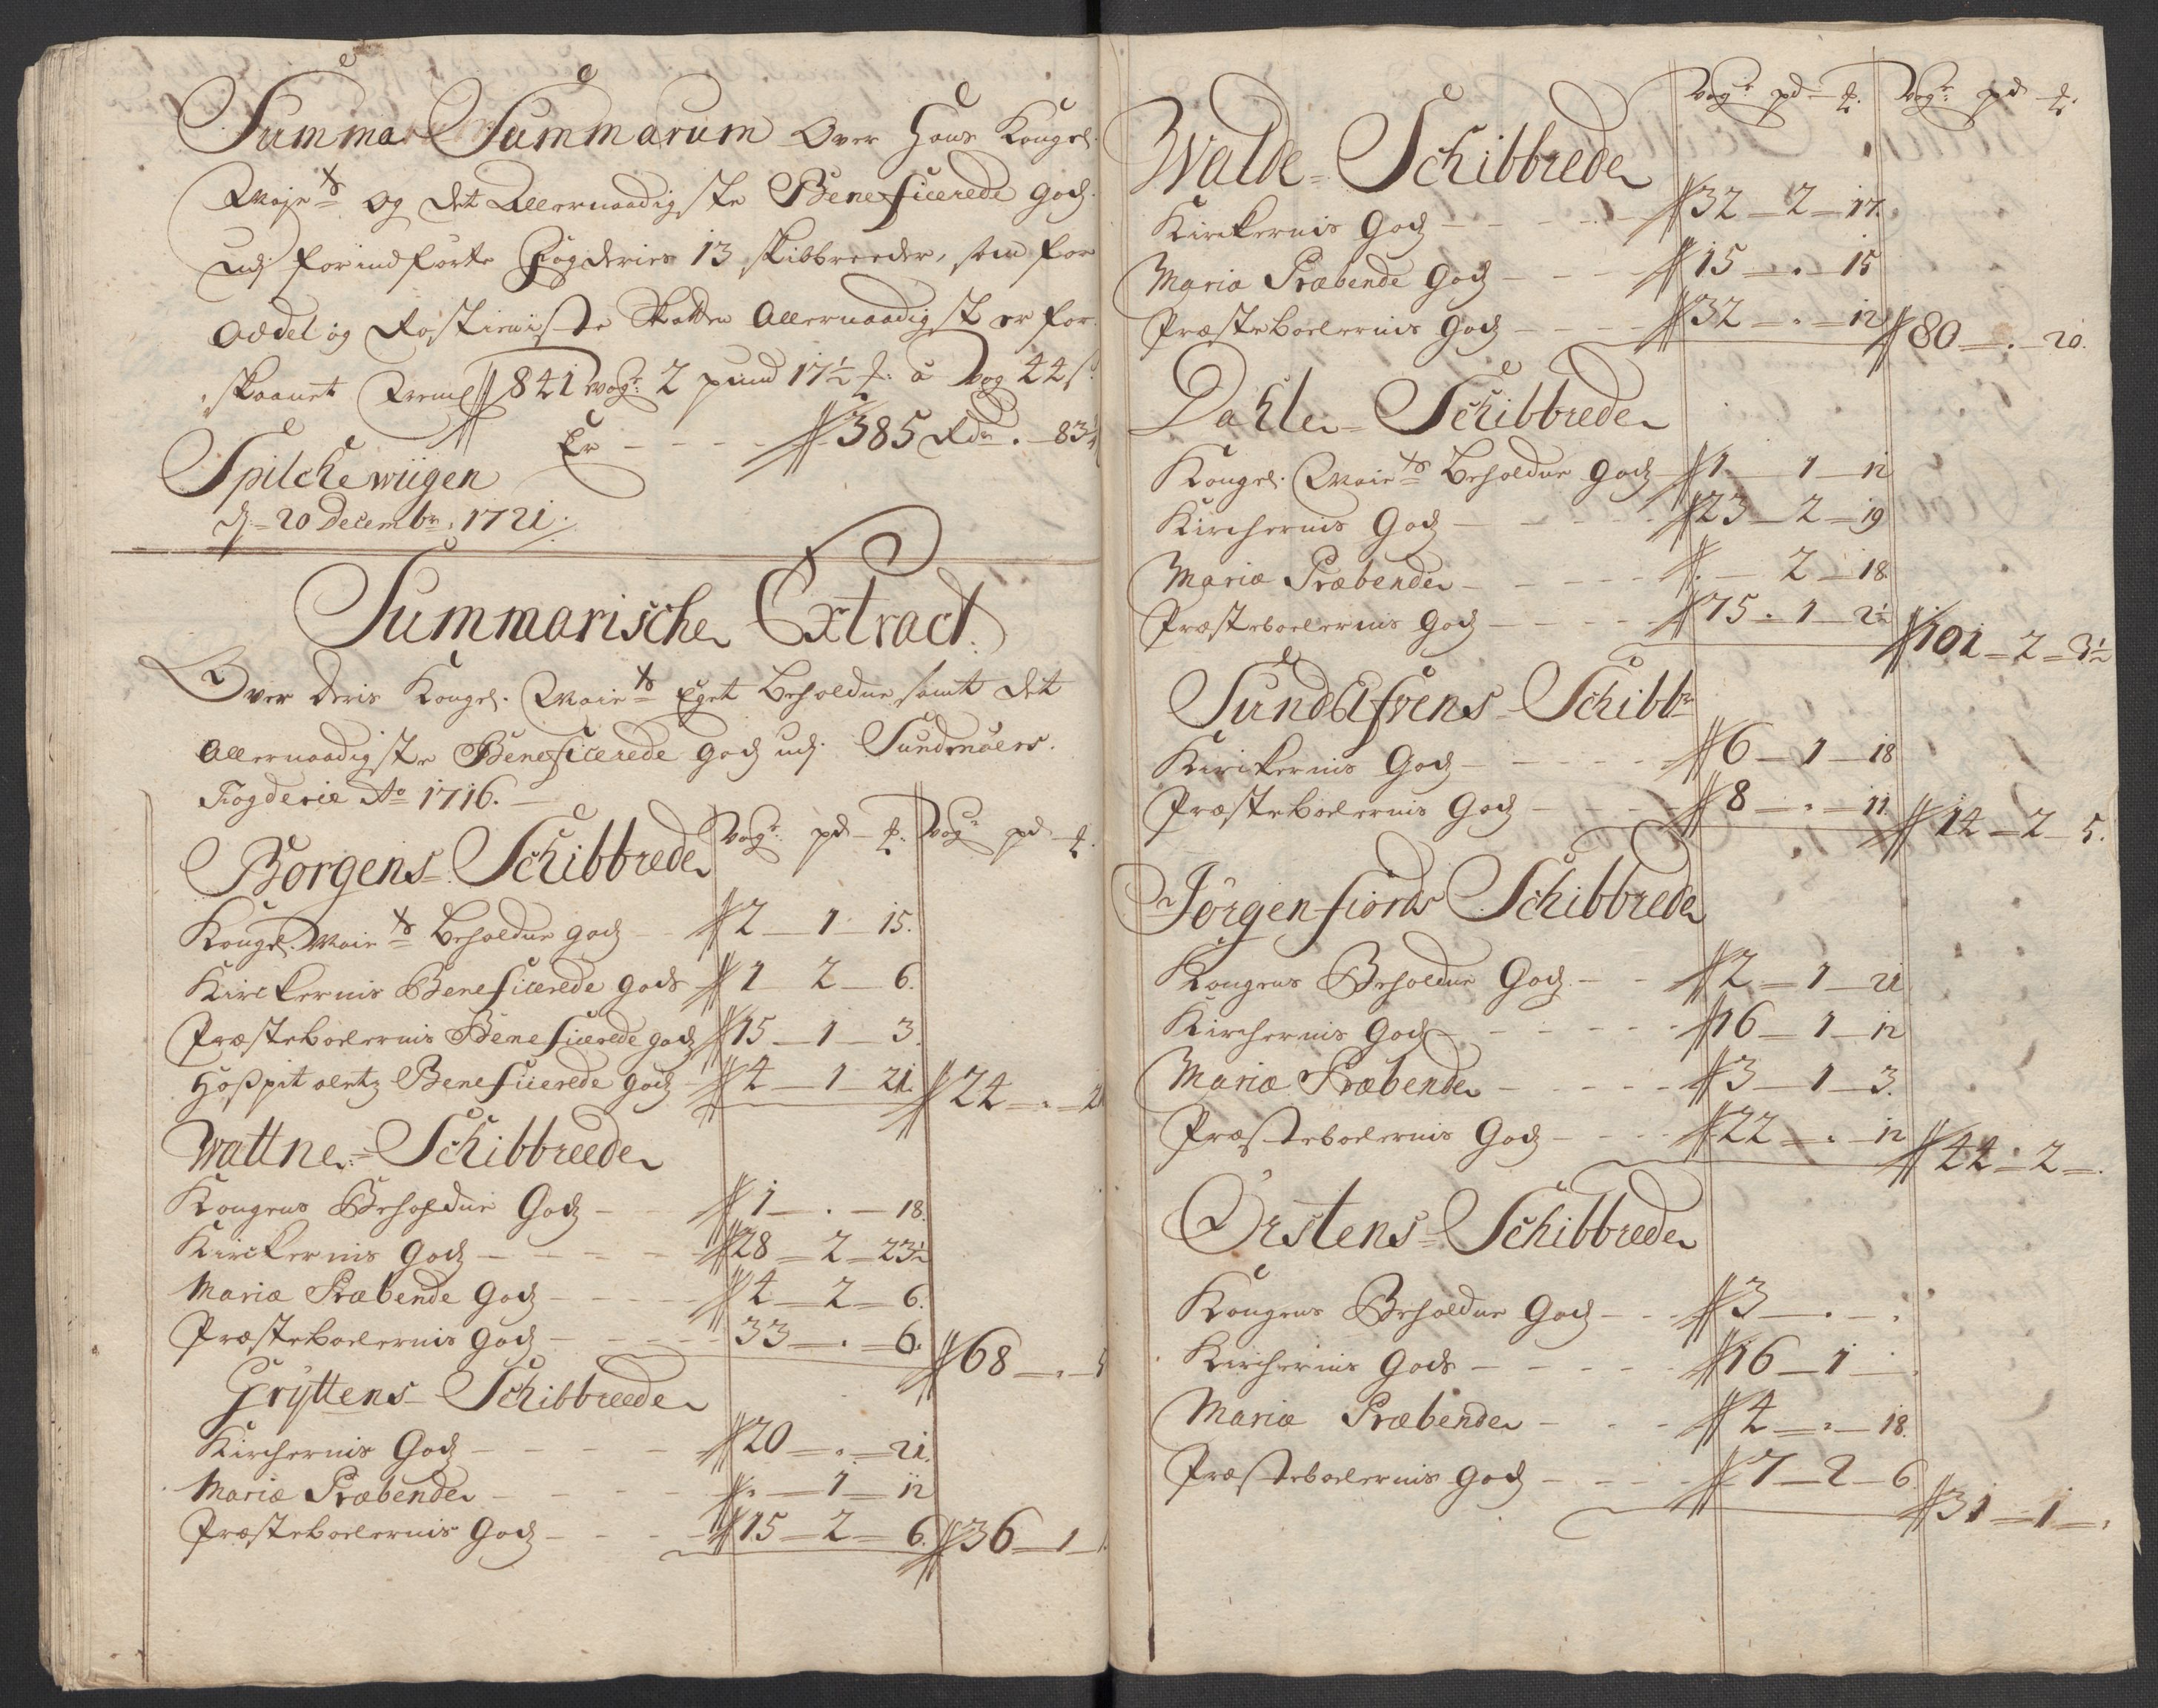 Summa Summarum Over Hans Kongel.
Maje^ts og det Allernaadigste Beneficerede Gods
udj forindførte Fogderies 13 skibbreeder, som for
Oddel og Rostieniste Skatten Allernaadigst er for-
skaanet Neml 841 vog^r 2 pund 17½ ℔: a vog 44 s:
Er - - - - 385 Rd^r . - 83½
Spilchewiigen
d: 20 Decembr: 1721.
Summarische Extract.
Over deris Kongel. Maie^ts Eget beholdne samt det
Allernaadigste Beneficerede Gods udj. Sundmøers
Fogderie A^o 1716.
vog^r: pd - ℔: vog^r pd - ℔.
Borgens Schibbrede
Kongl. Maie^ts beholdne gods - 2 - 1 - 15.
Kirckernis Beneficerede gods 1 - 2 - 6.
Præsteboelernis Beneficerede gods 15 - 1 - 3.
Hospitaletz Beneficerede gods 4 - 1 - 21. 24 - . - 21
Wattne Schibbreede
Kongens Beholdne Gods - - 1 - . - 18.
Kirckernis Gods - - - - - 28 - 2 - 23½
Mariæ Præbende Gods - - - - 4 - 2 - 6.
Præsteboelernis Gods - - - - 33 - . - 6. 68 - . - 5
Gryttens Schibbreede
Kirchernis Gods - - - - 20 - . - 21.
Mariæ Præbende - - - - . - 1 - 12
Præsteboelernis Gods - - - - 15 - 2 - 6. 36 - 1 -
vog^r pd - ℔. vog^r: pd ℔.
Walde Schibbrede
Kirckernis Gods - - - - 32 - 2 - 17.
Maria Præbende Gods - - - - 15 - . - 15
Præsteboelernis Gods - - - - 32 - . - 12 80 - . - 20.
Dahle Schibbrede
Kongel. Maie^ts Beholdne Gods 1 - 1 - 12
Kirchernis Gods - - - - - 23 - 2 - 19
Mariæ Præbende - - - - - . - 2 - 18.
Præsteboelernis Gods - - - - 75 - 1 - 2½ 101 - 2 - 3½
Sundelfvens Schibb^r
Kirckernis Gods - - - - - 6 - 1 - 18
Præsteboelernis Gods - - - - 8 - . - 11. 14 - 2 - 5.
Jørgenfiords Schibbrede
Kongens Beholdne Gods - - 2 - 1 - 21
Kirchernis Gods - - - - - 16 - 1 - 12
Mariæ Præbende - - - - - 3 - 1 - 3.
Præsteboelernis Gods - - - - 22 - . - 12 44 - 2 - .
Ørstens Schibbrede
Kongens Beholdne Gods - - 3 - . - .
Kirchernis Gods - - - - - 16 - 1 - .
Mariæ Præbende - - - 4 - . - 18.
Præsteboelernis Gods - - - - 7 - 2 - 6 31 - 1 - .